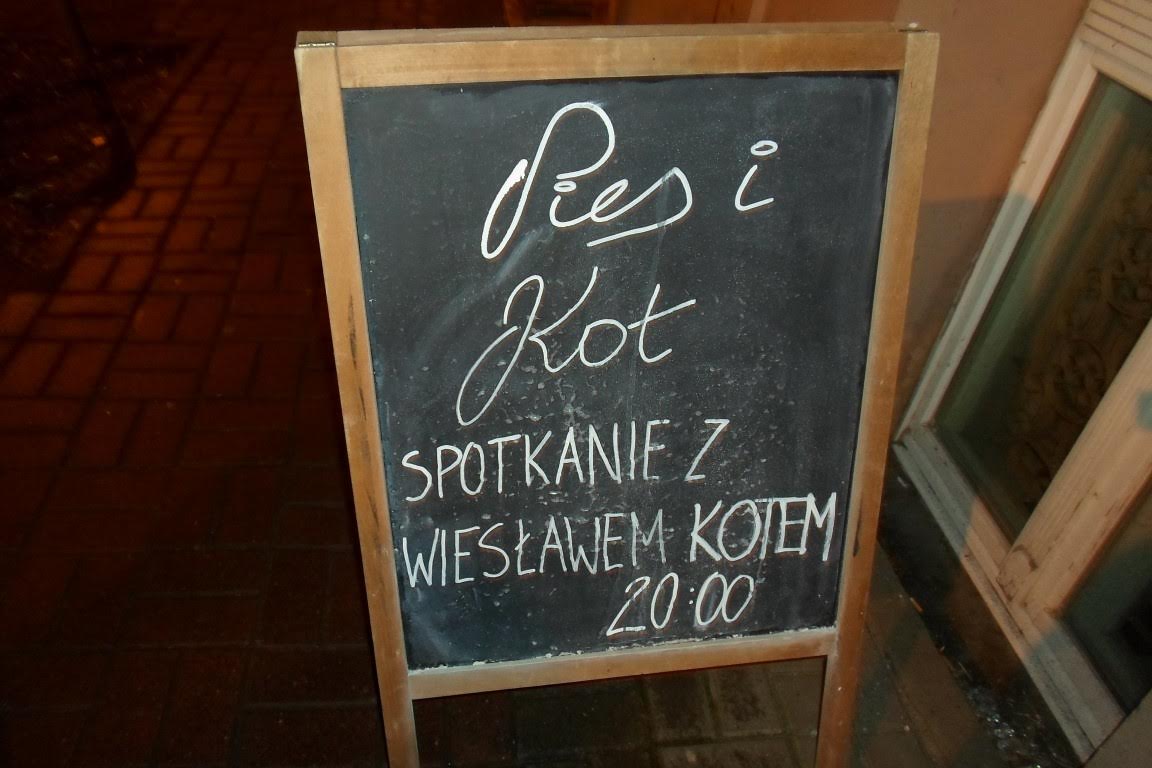 Pies i
Kot
SPOTKANIE Z
WIESŁAWEM KOTEM
20:00